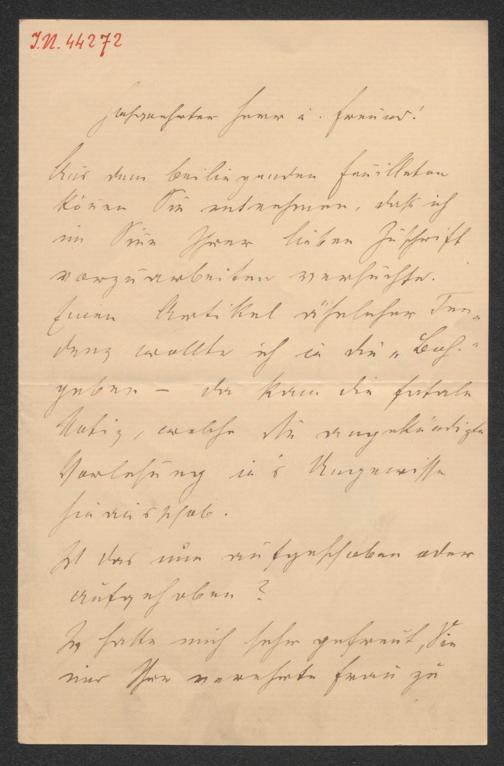 J.N. 44272
Hochgeehrter Herr u. Freund!
Aus dem beiliegenden Feuilleton
können Sie entnehmen, daß ich
im Sinne Ihrer lieben Zuschrift
vorzuarbeiten versuchte.
Einen Artikel ähnlicher Ten-
denz wollte ich in die „Boh."
geben – da kam die fatale
Notiz, welche die angekündigte
Vorlesung in's Ungewisse
hinausschob.
Ist das nun aufgeschoben oder
aufgehoben?
Ich hatte mich sehr gefreut, Sie
und Ihre verehrte Frau zu